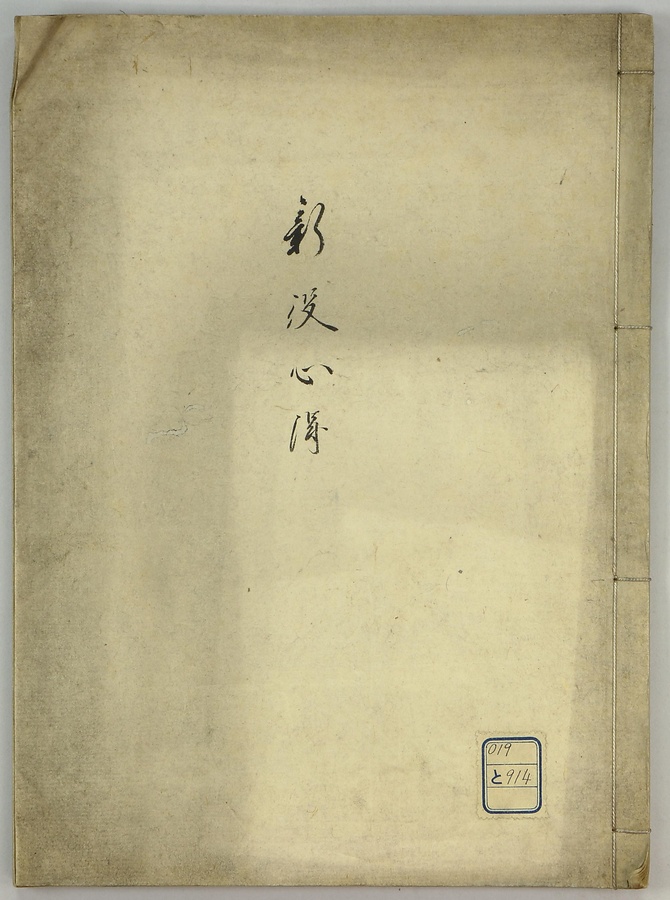 新役心得
019
と914